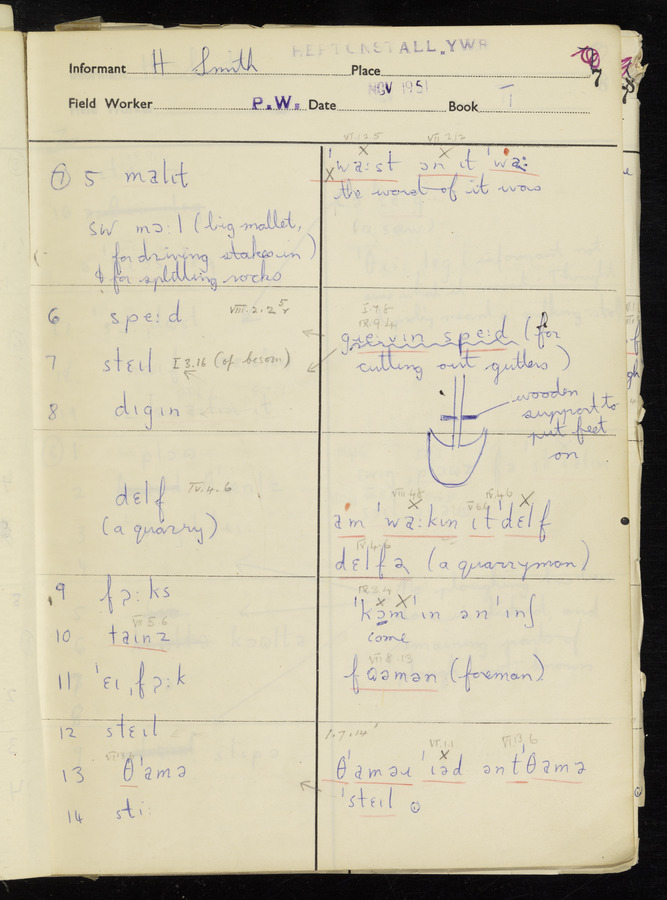 HEPTONSTALL, YWR
Informant H Smith Place 7
Field Worker P.W. Date NOV 1951 Book I
⑦ 5 malɪt
sw mɔ:l (big mallet,
for driving stakes in)
& for splitting rocks
6 spe:d VIII.2.2
7 stɛɪl I 3.16 (of besom)
8 dɪgɪn
dɛlf IV.4.6
(a quarry)
9 fɔ:ks
VII 5.6
10 taɪnz
11 ˈɛɪˌfɔ:k
12 stɛɪl
13 θˈamə
14 sti:
VI.12.5 VII.2.12
ˈwa:st ən ɪt ˈwa:
the worst of it was
I.7.8
IX.9.4
gre:vɪn spe:d (for
cutting out gutters)
wooden
support to
put feet
on
VIII.4.8 IV.4.6
am ˈwa:kɪn ɪtˈdɛlf
IV.4.6
dɛlfə (a quarryman)
IX.3.4
ˈkɔmˈɪn ənˈɪnʃ
come
VII 8.13
fɔəmən (foreman)
I.7.14
VI.1.1 VI.13.6
θˈaməz ˈɪəd əntˈθamə
ˈstɛɪl